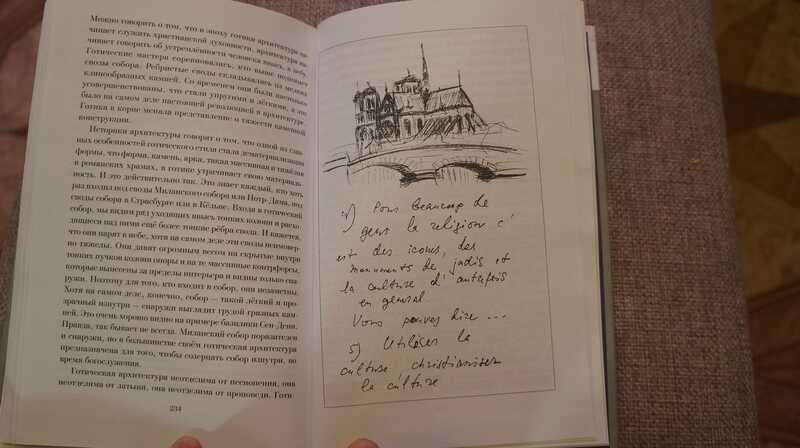 Можно говорить о том, что в эпоху готики архитектура на-
чинает служить христианской духовности, архитектура на-
чинает говорить об устремлённости человека ввысь, к небу.
Готические мастера соревновались, кто выше поднимет
своды собора. Ребристые своды складывались из мелких
клинообразных камней. Со временем они были настолько
усовершенствованы, что стали упругими и лёгкими, и это
было на самом деле настоящей революцией в архитектуре.
Готика в корне меняла представление о тяжести каменной
конструкции.
Историки архитектуры говорят о том, что одной из глав-
ных особенностей готического стиля стала дематериализация
формы, что форма, камень, арка, такая массивная и тяжёлая
в романских храмах, в готике утрачивает свою материаль-
ность. И это действительно так. Это знает каждый, кто хоть
раз входил под своды Миланского собора или Нотр-Дама, под
своды собора в Страсбурге или в Кёльне. Входя в готический
собор, мы видим ряд уходящих ввысь тонких колонн и расхо-
дящиеся над ними ещё более тонкие рёбра свода. И кажется,
что они парят в небе, хотя на самом деле эти своды неимовер-
но тяжелы. Они давят огромным весом на скрытые внутри
тонких пучков колонн опоры и на те массивные контрфорсы,
которые вынесены за пределы интерьера и видны только сна-
ружи. Поэтому для того, кто входит в собор, они незаметны.
Хотя на самом деле, конечно, собор – такой лёгкий и про-
зрачный изнутри – снаружи выглядит грудой грязных кам-
ней. Это очень хорошо видно на примере базилики Сен-Дени.
Правда, так бывает не всегда. Миланский собор поразителен
и снаружи, но в большинстве своём готическая архитектура
предназначена для того, чтобы созерцать собор изнутри, во
время богослужения.
Готическая архитектура неотделима от песнопения, она
неотделима от латыни, она неотделима от проповеди. Готи-
234
4) Pour beaucoup de
gens la religion c'
est des icones, des
monuments de jadis et
la culture d'autrefois
en general
Vous pouvez dire ...
5) Utiliser la
culture christianiser
la culture